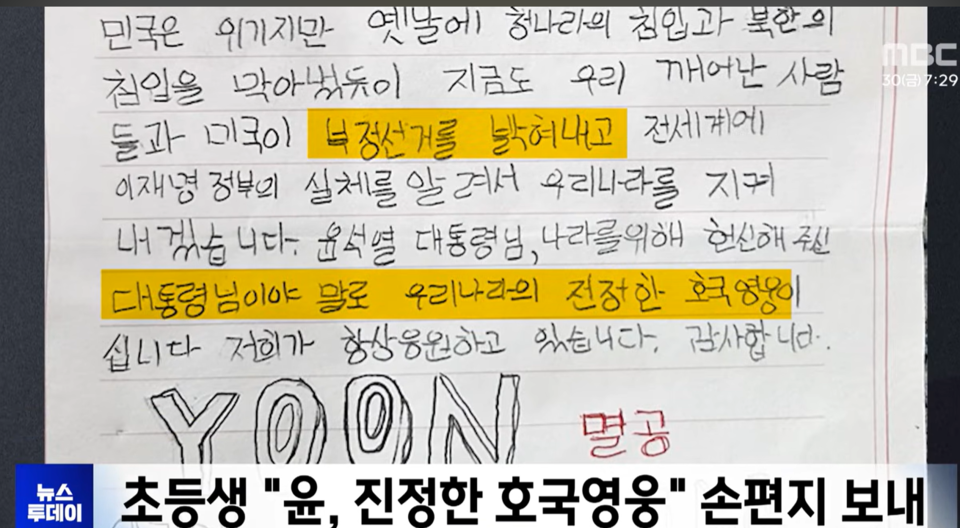 민국은 위기지만 옛날에 청나라의 침입과 북한의
MBC
30(금) 7:29
침입을 막아냈듯이 지금도 우리 깨어난 사람
들과 미국이 부정선거를 밝혀내고 전세계에
이재명 정부의 실체를 알려서 우리나라를 지켜
내겠습니다. 윤석열 대통령님, 나라를위해 헌신해 주신
대통령님이야 말로 우리나라의 진정한 호국영웅이
십니다 저희가 항상응원하고 있습니다. 감사합니다.
YOON 멸공
뉴스
투데이
초등생 "윤, 진정한 호국영웅" 손편지 보내